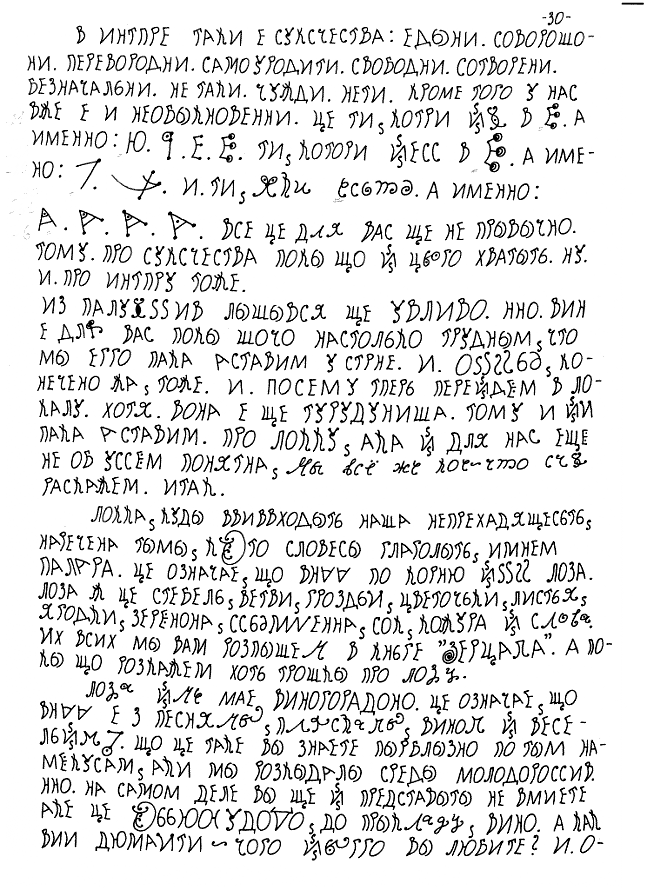 -30-
В ИНТПРЕ ТАКИ Е СУКСЧЕСТВА: ЕДЫНИ. СОВОРОШО-
НИ. ПЕРЕВОРОДНИ. САМОУРОДИТИ. СВОБОДНИ. СОТВОРЕНИ.
БЕЗНАЧАЛЬНИ. НЕ ТАКИ. ЧУЖДИ. НЕТИ. КРОМЕ ТОГО У НАС
ВЖЕ Е И НЕОБЫКНОВЕННИ. ЦЕ ТИ, КОТРИ В Е. А
ИМЕННО: Ю. Е. Е. ТИ, КОТОРИ В Е. А ИМЕ-
НО: И. ТИ, ЯКИ А ИМЕННО:
А. А. А. А. ВСЕ ЦЕ ДЛЯ ВАС ЩЕ НЕ ПРЫВЫЧНО.
ТОМУ. ПРО СУКСЧЕСТВА ПОКЫ ЩО Й ЦЬОГО ХВАТЫТЬ. НУ.
И. ПРО ИНТПРУ ТОЖЕ.
ИЗ ЛЫШЫВСЯ ЩЕ УВЛИВО. ННО. ВИН
Е ДЛЯ ВАС ПОКЫ ШОЧО НАСТОЛЬКО ТРУДНЫМ, ЧТО
МЫ ЕГГО ПАКА АСТАВИМ У СТРНЕ. И. КО-
НЕЧЕНО ЖА, ТОЖЕ. И. ПОСЕМУ ТПЕРЬ ПЕРЕЙДЕМ В ЛО-
КАЛУ. ХОТЯ. ВОНА Е ЩЕ ТУРУДУНИША. ТОМУ И ЙИ
ПАКА АСТАВИМ. ПРО ЛОККУ, АКА Й ДЛЯ НАС ЕЩЕ
НЕ ОБ УССЕМ ПОНЯТНА, Мы всё же кое-что
РАСКАЖЕМ. ИТАК.
ЛОККА, КУДЫ ВВИВВХОДЫТЬ НАША НЕПРЕХАДЯЩЕСЬТЬ,
НАРЕЧЕНА ТЫМЫ, СЛОВЕСЫ ГЛАГОЛЫТЬ, ИМНЕМ
ПАЛАРА. ЦЕ ОЗНАЧАЕ, ЩО ВНАА ПО КОРНЮ ЛОЗА.
ЛОЗА Ж ЦЕ СТЕБЕЛЬ, ВЕТВИ, ГРОЗДЬИ, ЦВЕТОЧЬКИ, ЛИСТЬЯ,
ЯГОДКИ, ЗЕРЕНОНА, СОК, КОЖУРА Й Слова.
ИХ ВСИХ МЫ ВАМ РОЗПЫШЕМ В КНЬГЕ "ЗЕРЦАЛА". А ПО-
КЫ ЩО РОЗКАЖЕМ ХОТЬ ТРОШКЫ ПРО ЛОЗУ.
ЛОЗА МАЕ ВИНОГОРАДОНО. ЦЕ ОЗНАЧАЕ, ЩО
ВНАА Е З ПЕСНЯМЫ, ПЛЯСКАМЫ, ВИНОМ Й ВЕСЕ-
ЛЬЙМ ЩО ЦЕ ТАКЕ ВЫ ЗНАЕТЕ ПЫРБЛЫЗНО ПО ТЫМ НА-
МЕКУСАМ, АКИ МЫ РОЗКЫДАЛЫ СРЕДЫ МОЛОДОРОССИВ.
ННО. НА САМОМ ДЕЛЕ ВЫ ЩЕ Й ПРЕДСТАВЫТЫ НЕ ВМИЕТЕ
АКЕ ЦЕ ДО ПРЫКЛАДУ, ВИНО. А КАК
ВИИ ДЮМАИТИ - ЧОГО ВЫ ЛЮБИТЕ? И. О-